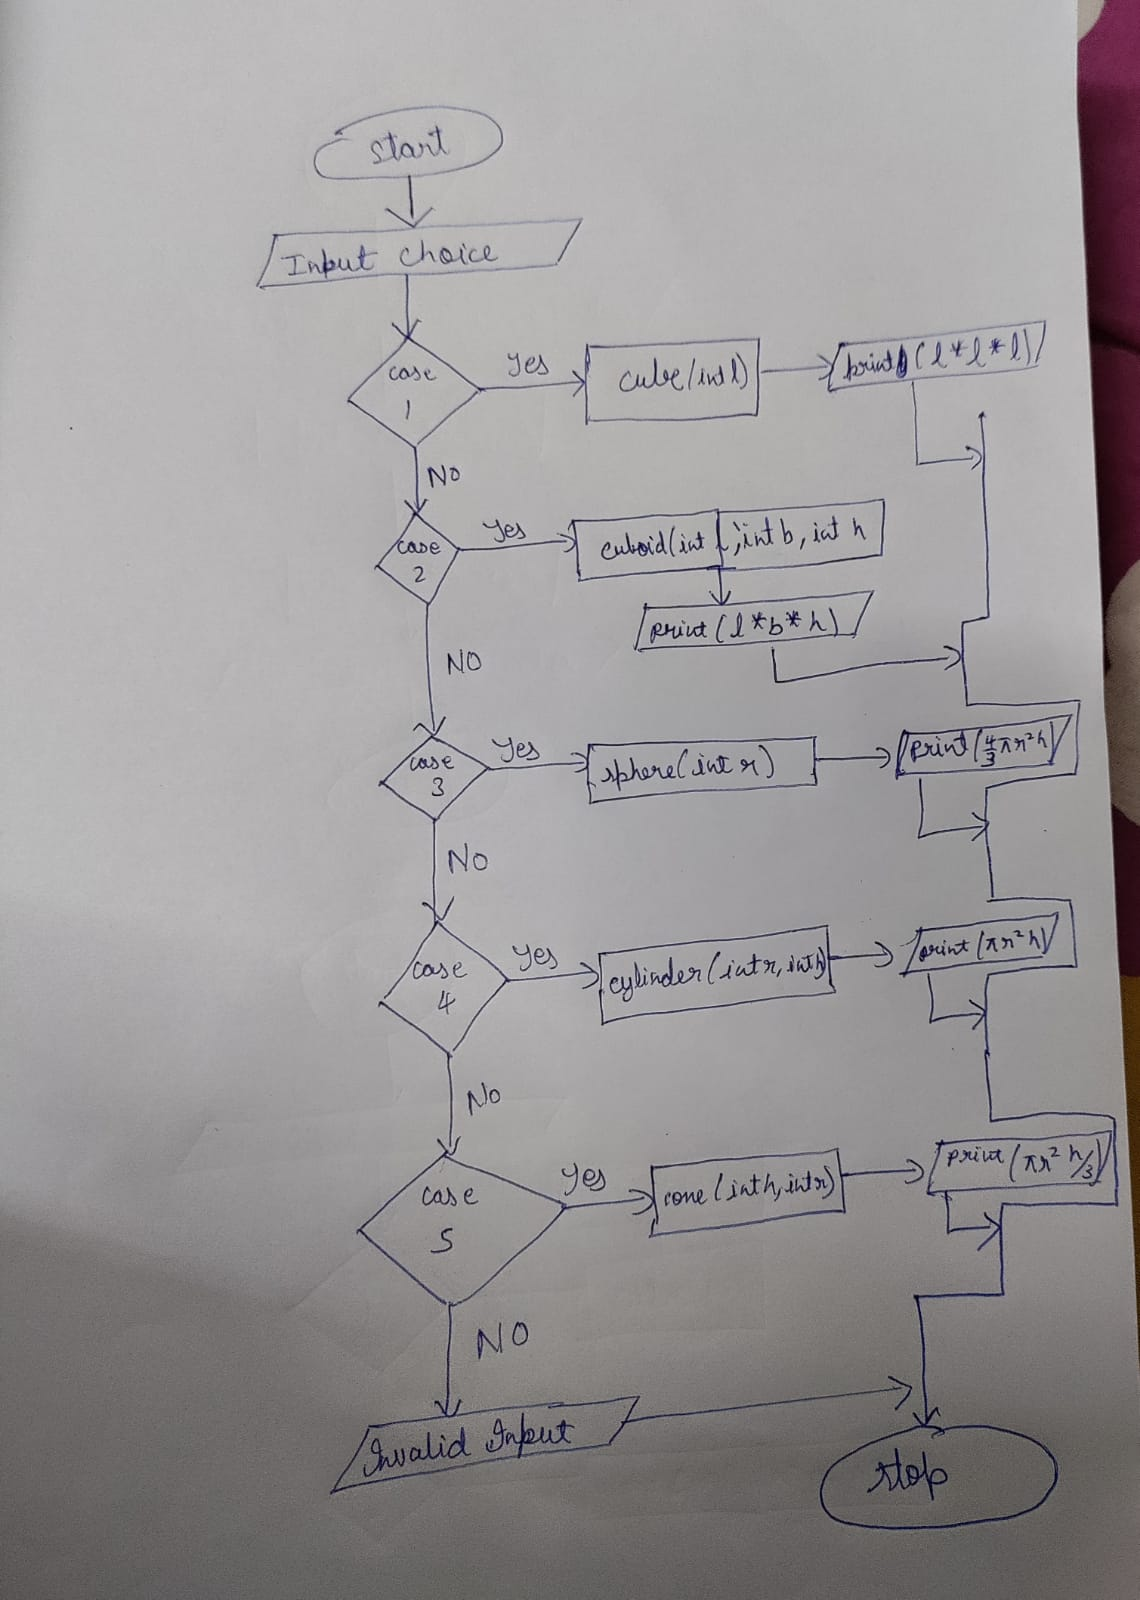 start
Input choice
case
1
Yes
cube(int l)
print(l*l*l)
NO
case
2
Yes
cuboid(int l, int b, int h
print(l*b*h)
NO
case
3
Yes
sphere(int r)
print(4/3πr²h)
NO
case
4
Yes
cylinder(int r, int h)
print(πr²h)
No
case
5
Yes
cone(int h, int r)
print(πr²h/3)
NO
Invalid Input
stop